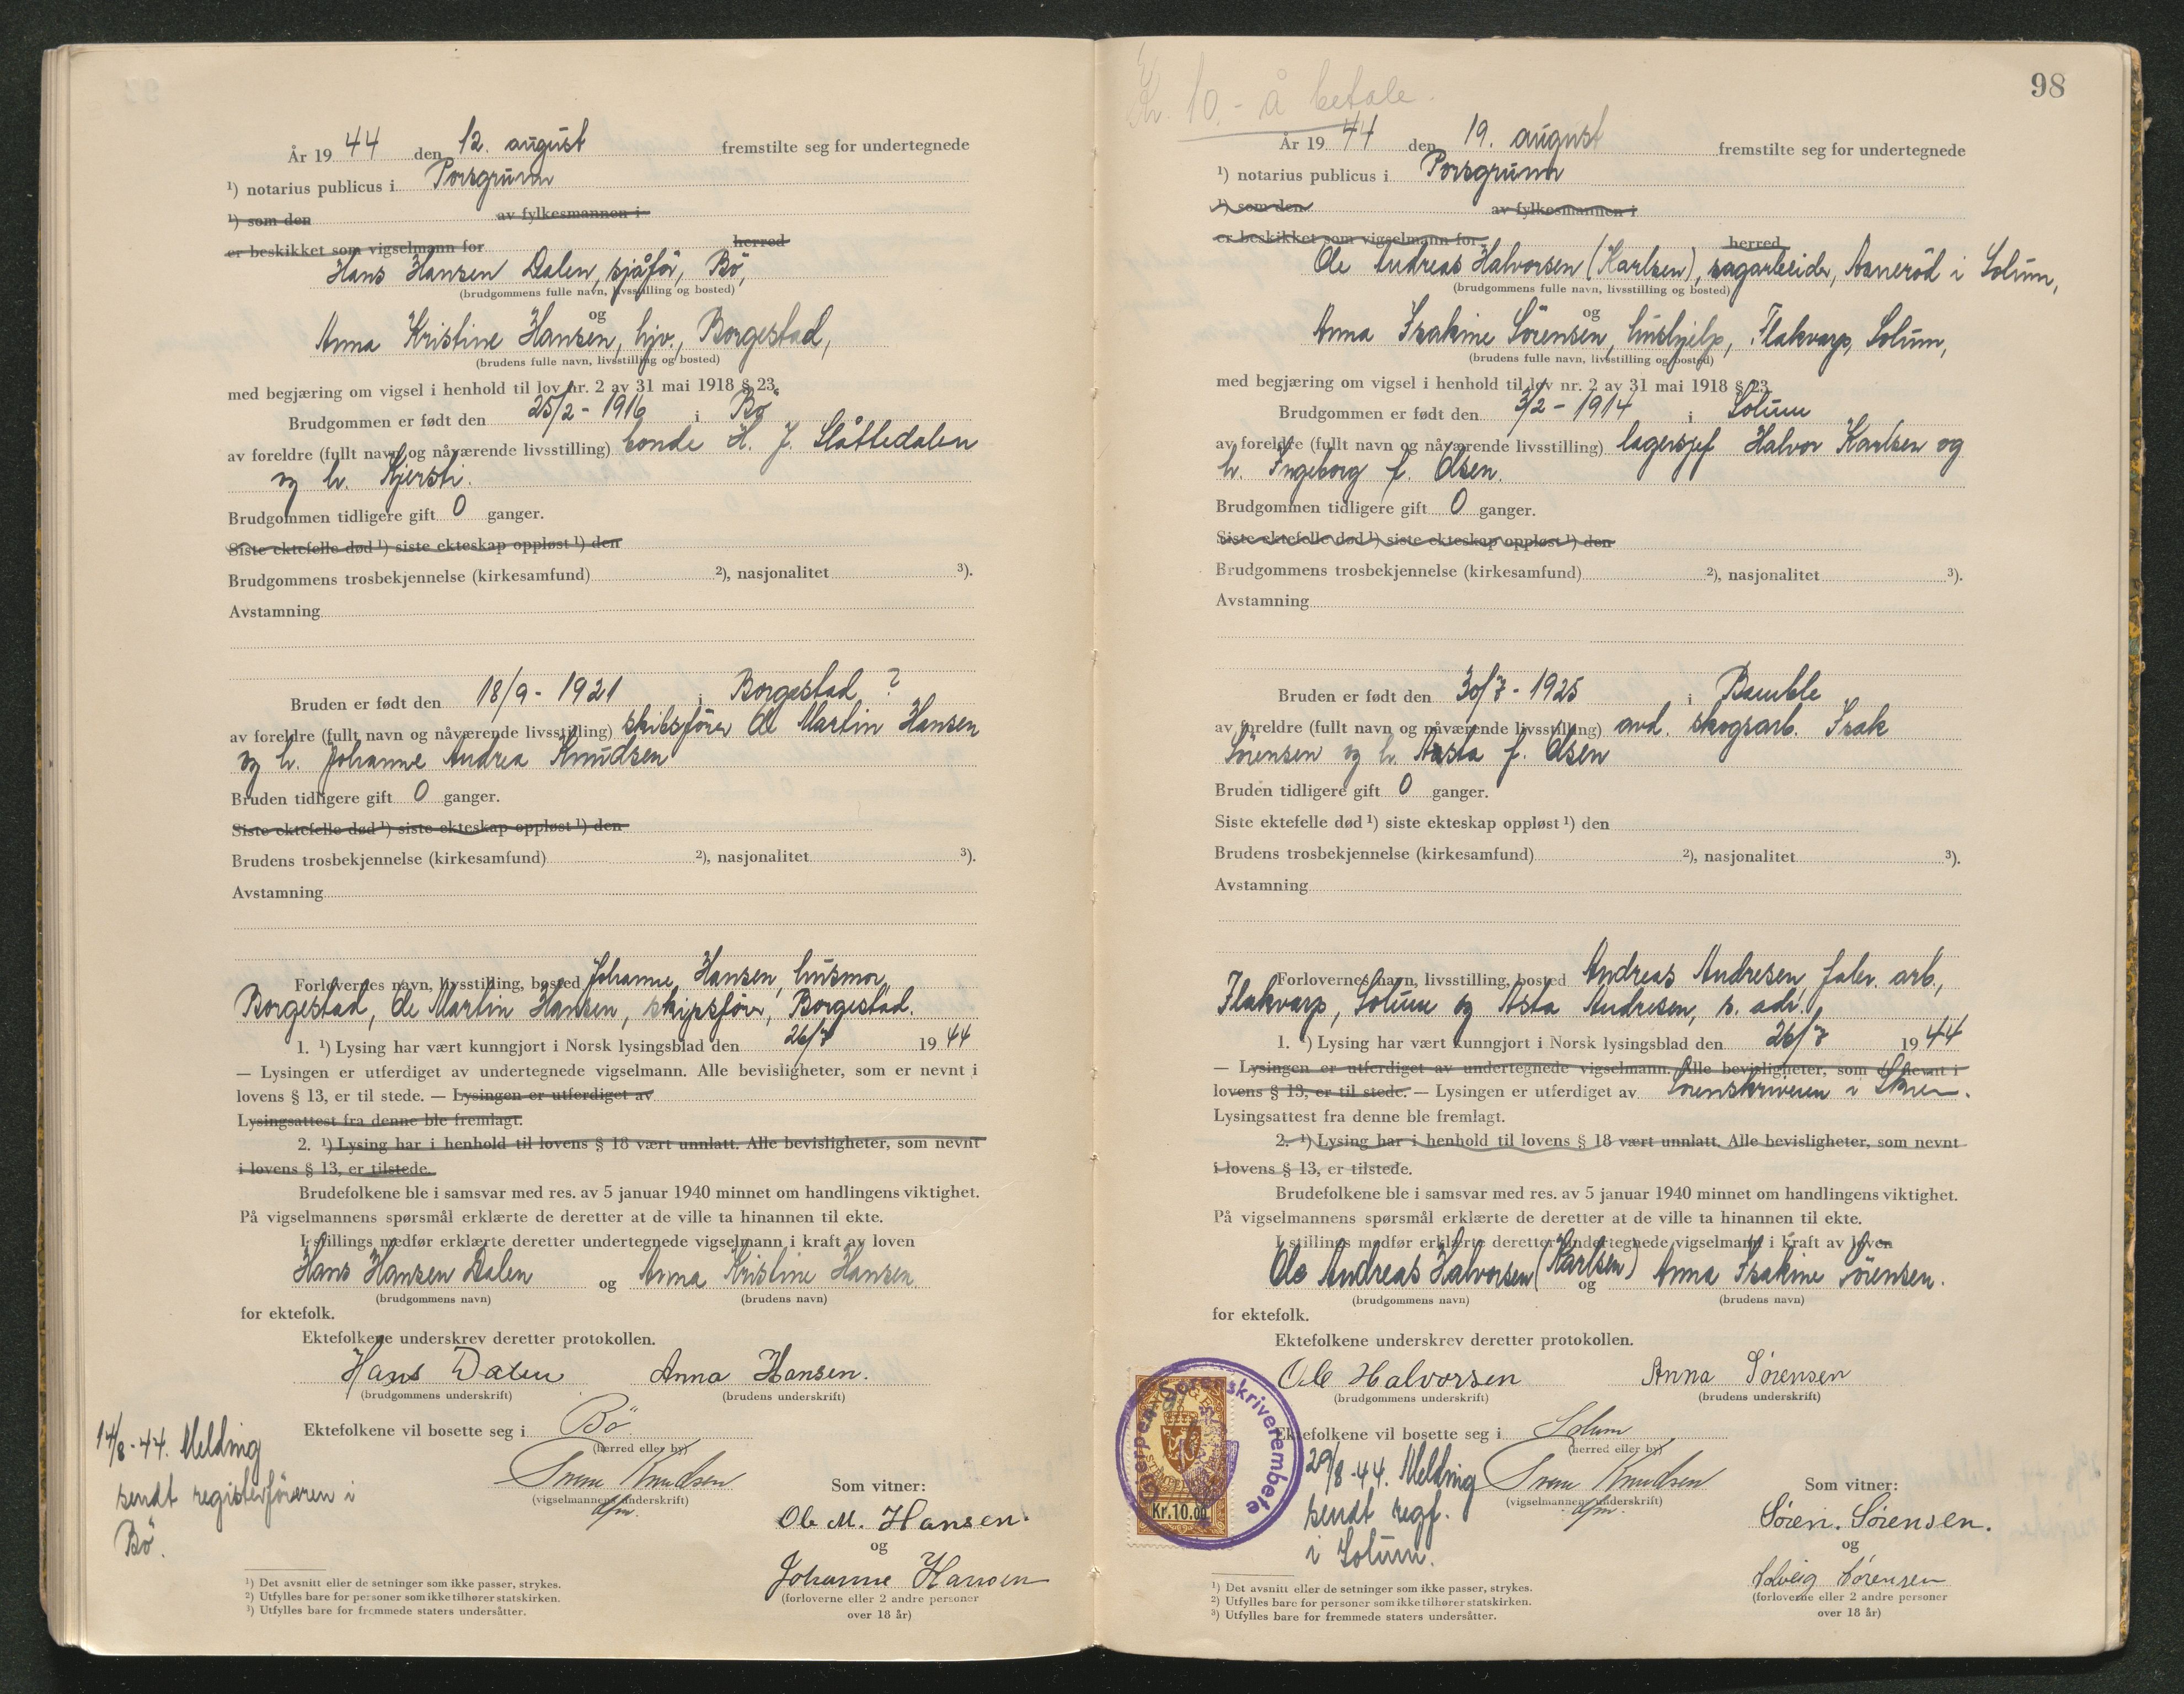 År 19 44 den 12. august fremstilte seg for undertegnede
¹) notarius publicus i Porsgrunn
¹) som den av fylkesmannen i
er beskikket som vigselmann for herred
Hans Hansen Dalen, sjåför, Bö,
(brudgommens fulle navn, livsstilling og bosted)
og
Anna Kristine Hansen, hjv., Borgestad,
(brudens fulle navn, livsstilling og bosted)
med begjæring om vigsel i henhold til lov nr. 2 av 31 mai 1918 § 23.
Brudgommen er født den 25/2 - 1916 i Bö
av foreldre (fullt navn og nåværende livsstilling) bonde H. J. Slåttedalen
og h. Kjersti.
Brudgommen tidligere gift 0 ganger.
Siste ektefelle død ¹) siste ekteskap oppløst ¹) den
Brudgommens trosbekjennelse (kirkesamfund) ²), nasjonalitet ³).
Avstamning
Bruden er født den 18/9 - 1921 i Borgestad ?
av foreldre (fullt navn og nåværende livsstilling) skibsförer Ole Martin Hansen
og h. Johanne Andrea Knudsen
Bruden tidligere gift 0 ganger.
Siste ektefelle død ¹) siste ekteskap oppløst ¹) den
Brudens trosbekjennelse (kirkesamfund) ²), nasjonalitet ³).
Avstamning
Forlovernes navn, livsstilling, bosted Johanne Hansen, husmor,
Borgestad, Ole Martin Hansen, skipsförer, Borgestad.
1. ¹) Lysing har vært kunngjort i Norsk lysingsblad den 26/7 19 44
— Lysingen er utferdiget av undertegnede vigselmann. Alle bevisligheter, som er nevnt i
lovens § 13, er til stede. — Lysingen er utferdiget av
Lysingsattest fra denne ble fremlagt.
2. ¹) Lysing har i henhold til lovens § 18 vært unnlatt. Alle bevisligheter, som nevnt
i lovens § 13, er tilstede.
Brudefolkene ble i samsvar med res. av 5 januar 1940 minnet om handlingens viktighet.
På vigselmannens spørsmål erklærte de deretter at de ville ta hinannen til ekte.
I stillings medfør erklærte deretter undertegnede vigselmann i kraft av loven
Hans Hansen Dalen og Anna Kristine Hansen
(brudgommens navn) (brudens navn)
for ektefolk.
Ektefolkene underskrev deretter protokollen.
Hans Dalen Anna Hansen.
(brudgommens underskrift) (brudens underskrift)
Ektefolkene vil bosette seg i Bö
(herred eller by)
14/8-44. Melding
sendt registerföreren i
Bö.
Knudsen
(vigselmannens underskrift)
dfm.
Som vitner:
Ole M. Hansen.
og
Johanne Hansen
(forloverne eller 2 andre personer
over 18 år)
¹) Det avsnitt eller de setninger som ikke passer, strykes.
²) Utfylles bare for personer som ikke tilhører statskirken.
³) Utfylles bare for fremmede staters undersåtter.
98
Kr. 10.- å betale.
År 19 44 den 19. august fremstilte seg for undertegnede
¹) notarius publicus i Porsgrunn
¹) som den av fylkesmannen i
er beskikket som vigselmann for herred
Ole Andreas Halvorsen (Karlsen), sagarbeider, Asneröd i Solum,
(brudgommens fulle navn, livsstilling og bosted)
og
Anna Isakine Sörensen, hushjelp, Flakvarp, Solum,
(brudens fulle navn, livsstilling og bosted)
med begjæring om vigsel i henhold til lov nr. 2 av 31 mai 1918 § 23.
Brudgommen er født den 3/2 - 1914 i Solum
av foreldre (fullt navn og nåværende livsstilling) lagersjef Halvor Karlsen og
h. Ingeborg f. Olsen.
Brudgommen tidligere gift 0 ganger.
Siste ektefelle død ¹) siste ekteskap oppløst ¹) den
Brudgommens trosbekjennelse (kirkesamfund) ²), nasjonalitet ³).
Avstamning
Bruden er født den 30/7 - 1925 i Bamble
av foreldre (fullt navn og nåværende livsstilling) avd. skogsarb. Isak
Sörensen og h. Aasta f. Olsen
Bruden tidligere gift 0 ganger.
Siste ektefelle død ¹) siste ekteskap oppløst ¹) den
Brudens trosbekjennelse (kirkesamfund) ²), nasjonalitet ³).
Avstamning
Forlovernes navn, livsstilling, bosted Andreas Andresen, fabr. arb.,
Flakvarp, Solum og Asta Andresen, s. adr.
1. ¹) Lysing har vært kunngjort i Norsk lysingsblad den 26/7 19 44
— Lysingen er utferdiget av undertegnede vigselmann. Alle bevisligheter, som er nevnt i
lovens § 13, er til stede. — Lysingen er utferdiget av Sorenskriveren i Skien.
Lysingsattest fra denne ble fremlagt.
2. ¹) Lysing har i henhold til lovens § 18 vært unnlatt. Alle bevisligheter, som nevnt
i lovens § 13, er tilstede.
Brudefolkene ble i samsvar med res. av 5 januar 1940 minnet om handlingens viktighet.
På vigselmannens spørsmål erklærte de deretter at de ville ta hinannen til ekte.
I stillings medfør erklærte deretter undertegnede vigselmann i kraft av loven
Ole Andreas Halvorsen (Karlsen) og Anna Isakine Sörensen.
(brudgommens navn) (brudens navn)
for ektefolk.
Ektefolkene underskrev deretter protokollen.
Ole Halvorsen Anna Sörensen
(brudgommens underskrift) (brudens underskrift)
Gjerpen Sorenskriverembete
Kr. 10.00
Ektefolkene vil bosette seg i Solum
(herred eller by)
29/8-44. Melding
sendt regf.
i Solum.
Knudsen
(vigselmannens underskrift)
dfm.
Som vitner:
Sören. Sörensen.
og
Solveig Sörensen
(forloverne eller 2 andre personer
over 18 år)
¹) Det avsnitt eller de setninger som ikke passer, strykes.
²) Utfylles bare for personer som ikke tilhører statskirken.
³) Utfylles bare for fremmede staters undersåtter.